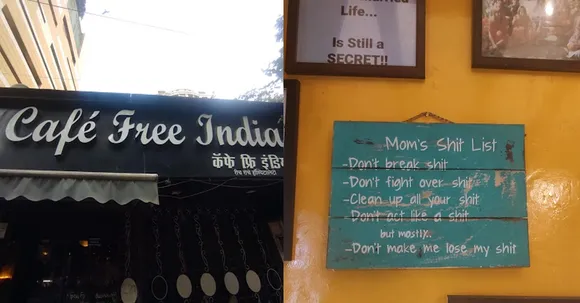 Café Free India
कॅफे फ्रि इंडिय
Life...
Is Still a
SECRET!!
Mom's Shit List
-Don't break shit
-Don't fight over shit
-Clean up all your shit
-Don't act like a shit
but mostly..
-Don't make me lose my shit